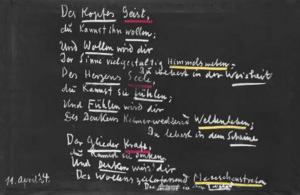 Des Kopfes Geist,
du kannst ihn wollen;
Und Wollen wird dir
Der Sinne vielgestaltig Himmelsweben;
Du webest in der Weisheit
Des Herzens Seele,
du kannst sie fühlen;
Und Fühlen wird dir
Des Denkens Keimerweckend Weltenleben;
Du lebest in dem Scheine
Der Glieder Kraft,
du kannst sie denken
Und Denken wird dir
Des Wollens zielerfassend Menschenstreben
Du
11. April 24.